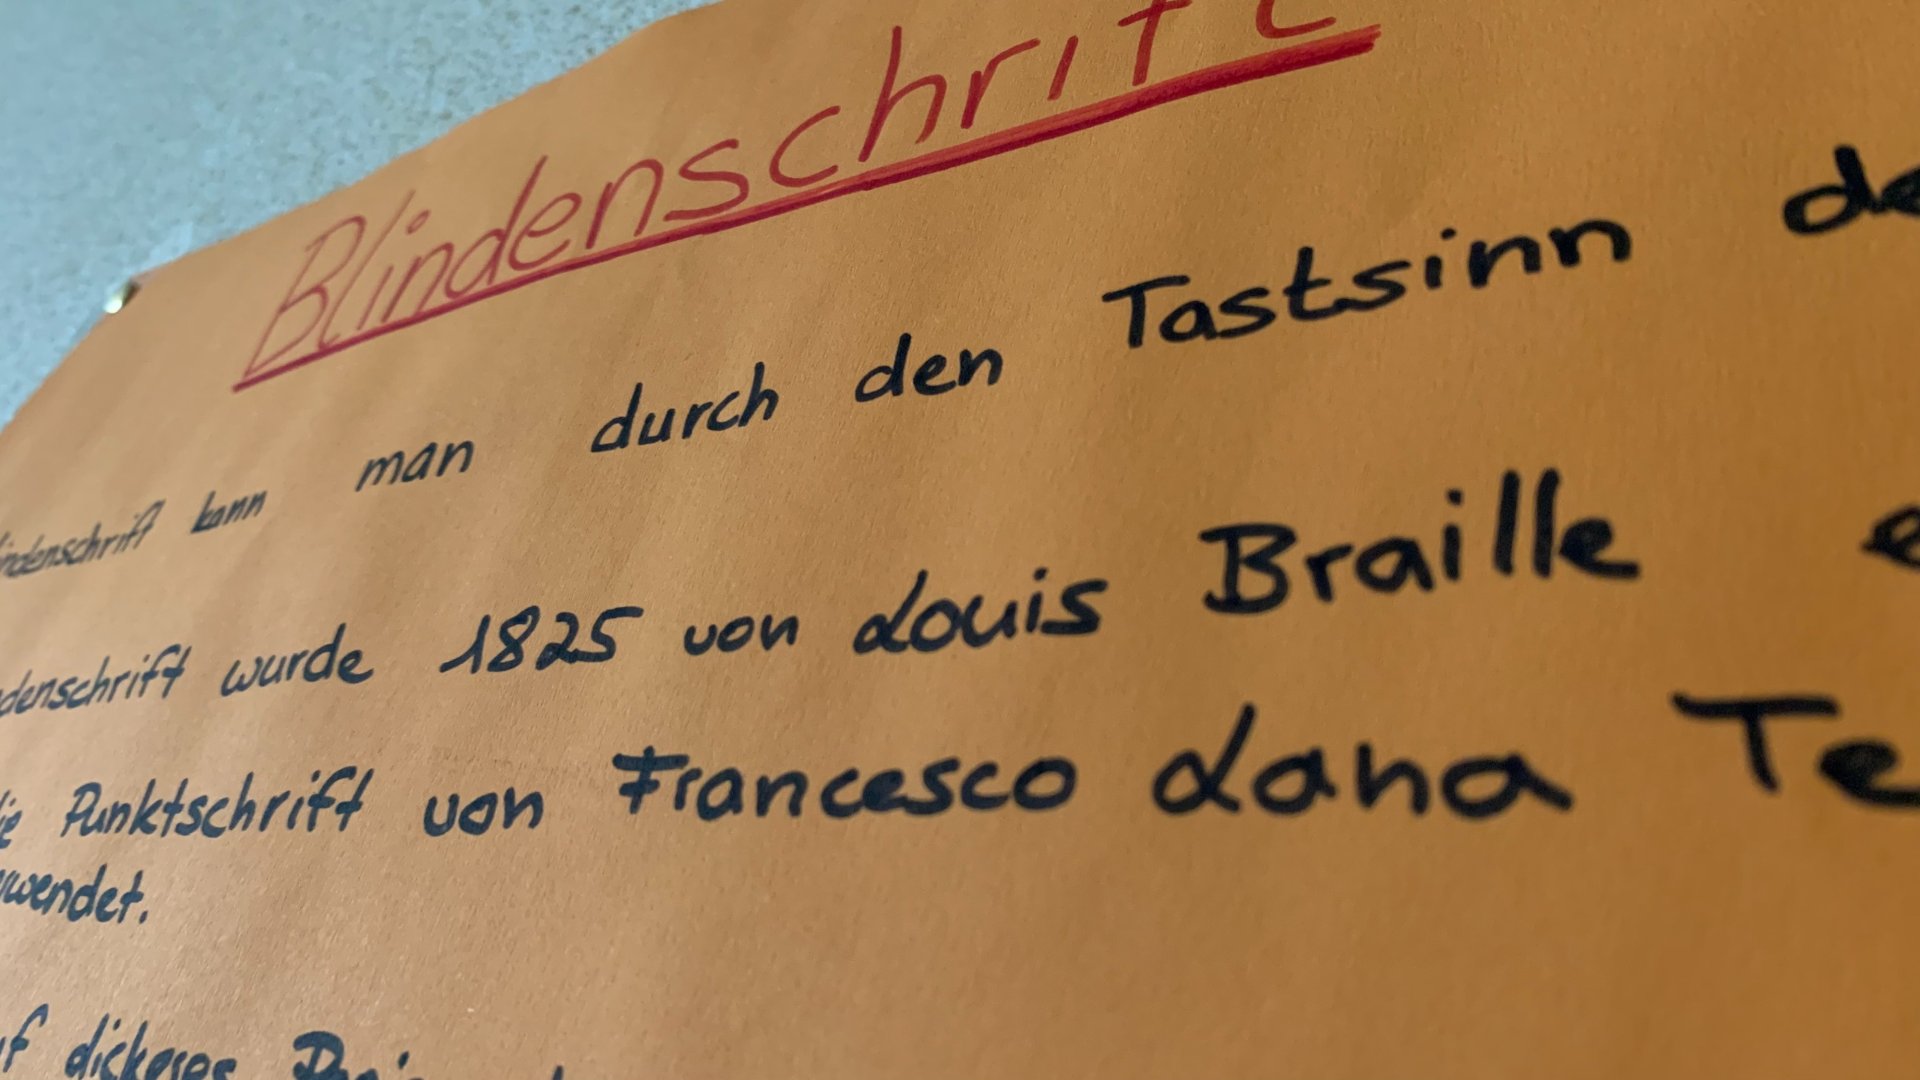 Blindenschrift
indenschrift kann man durch den Tastsinn de
denschrift wurde 1825 von Louis Braille e
ie Punktschrift von Francesco Lana Te
wendet.
f dickeres